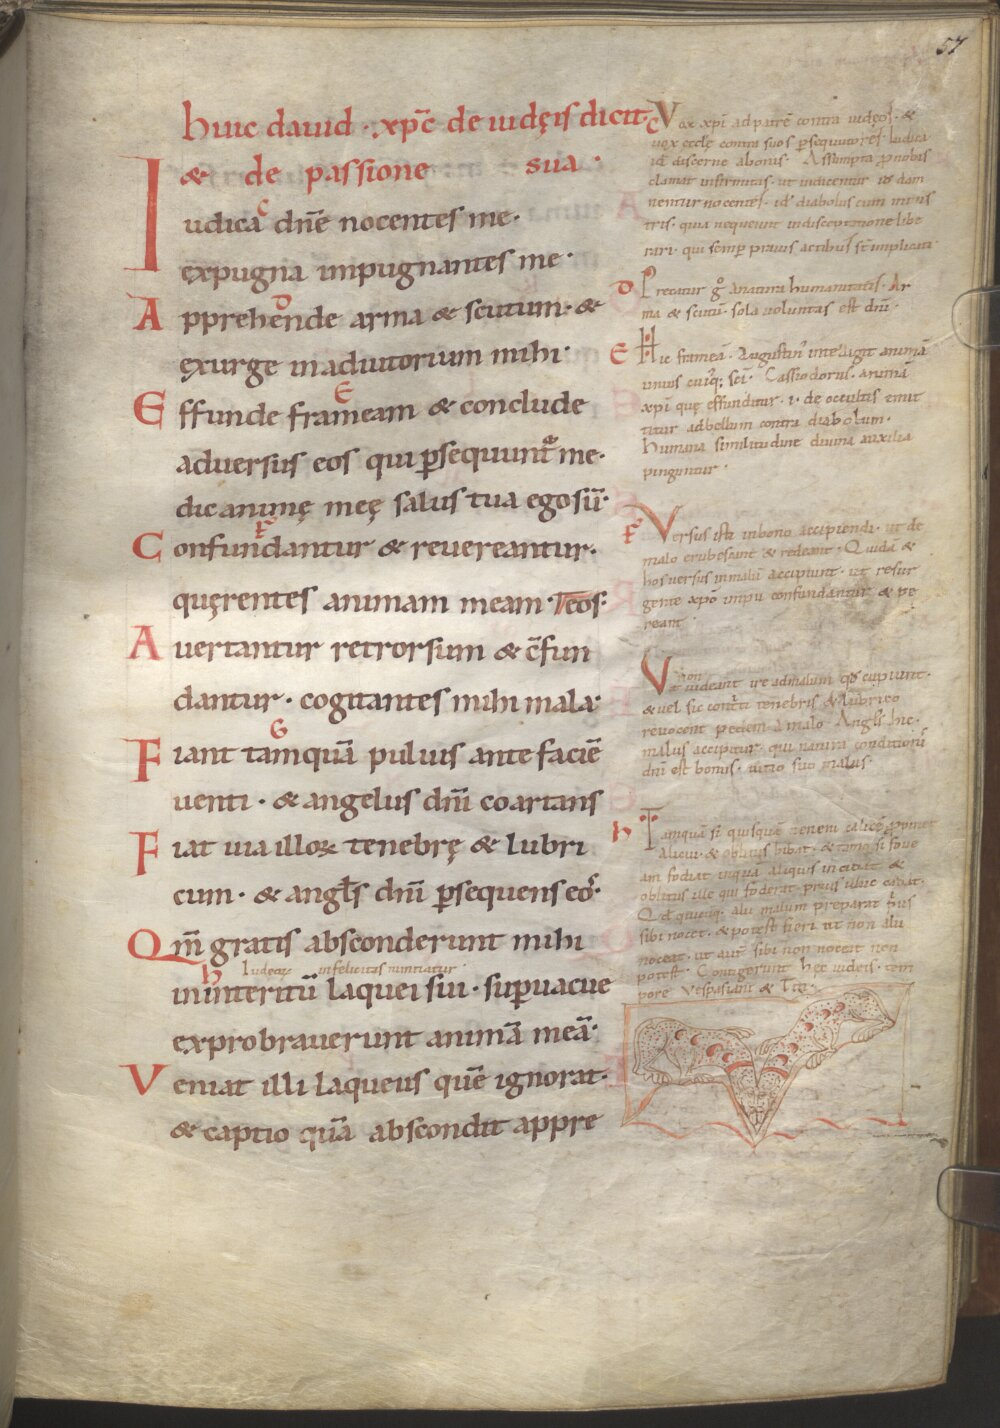 57
huic dauid · xp̄c de iudęis dicit
& de passione sua ·
Iudica dn̄e nocentes me ·
expugna impugnantes me ·
Apprehende arma & scutum · &
exurge in adiutorium mihi ·
Effunde frameam & conclude
aduersus eos qui ꝑsequunt᷑ me ·
dic animę meę salus tua ego sū ·
Confundantur & reuereantur ·
quęrentes animam meam · Teos ·
Auertantur retrorsum & c̄fun
dantur · cogitantes mihi mala ·
Fiant tamquā puluis ante faciē
uenti · & angelus dn̄i coartans
Fiat uia illoꝝ tenebrę & lubri
cum · & angl̄s dn̄i ꝑsequens eos ·
Qm̄ gratis absconderunt mihi
Iudeoꝝ infelicitas nuntiatur ·
in interitū laquei sui · suꝑuacue
exprobrauerunt animā meā ·
Veniat illi laqueus quē ignorat ·
& captio quā abscondit appre
C Vox xp̄i ad patrē contra iudęos · &
uox eccłe contra suos ꝑsequutores · Iudica
id ÷ discerne a bonis · Assumpta ꝓ nobis
clamat infirmitas · ut iudicentur id ÷ dam
nentur nocentes · id ÷ diabolus cum
quia nequeunt in disceptatione libe
rari · qui semꝑ prauis actibus sт̄ implicati
D Precatur g° a natura humanitatis · Ar
ma & scutū · sola uoluntas est dn̄i ·
E Hic frameā · Augustin᷒ intelligit animā
unius cuiusq; sc̄i · Cassiodorus · animā
xp̄i quę effunditur · i · de occultis emit
titur ad bellum contra diabolum ·
humana similitudine diuina auxilia
pinguntur ·
F Versus isti in bono accipiendi · ut de
malo erubescant & redeant · Quidā &
hos uersus in malū accipiunt · ut resur
gente xp̄o impii confundantur & pe
reant
Vt non uideant ire ad malum qd̄ cupiunt ·
& uel sic tenebris & lubrico
reuocent pedem a malo · Angl̄s hic ·
malus accipitur · qui natura
dn̄i est bonus · uitio suo malus ·
H Tamquā si quisquā ueneni calicē ꝓpinet
alicui · & oblitus bibat · & tamq̄ si foue
am fodiat
oblitus ille qui foderat · prius illuc cadat ·
Qd̄ quicūq; alii malum preparat prius
sibi nocet · & potest fieri ut non alii
noceat · ut aut̄ sibi non noceat non
potest · Contigerunt hec iudeis · tem
pore Vespasiani & Titi ·